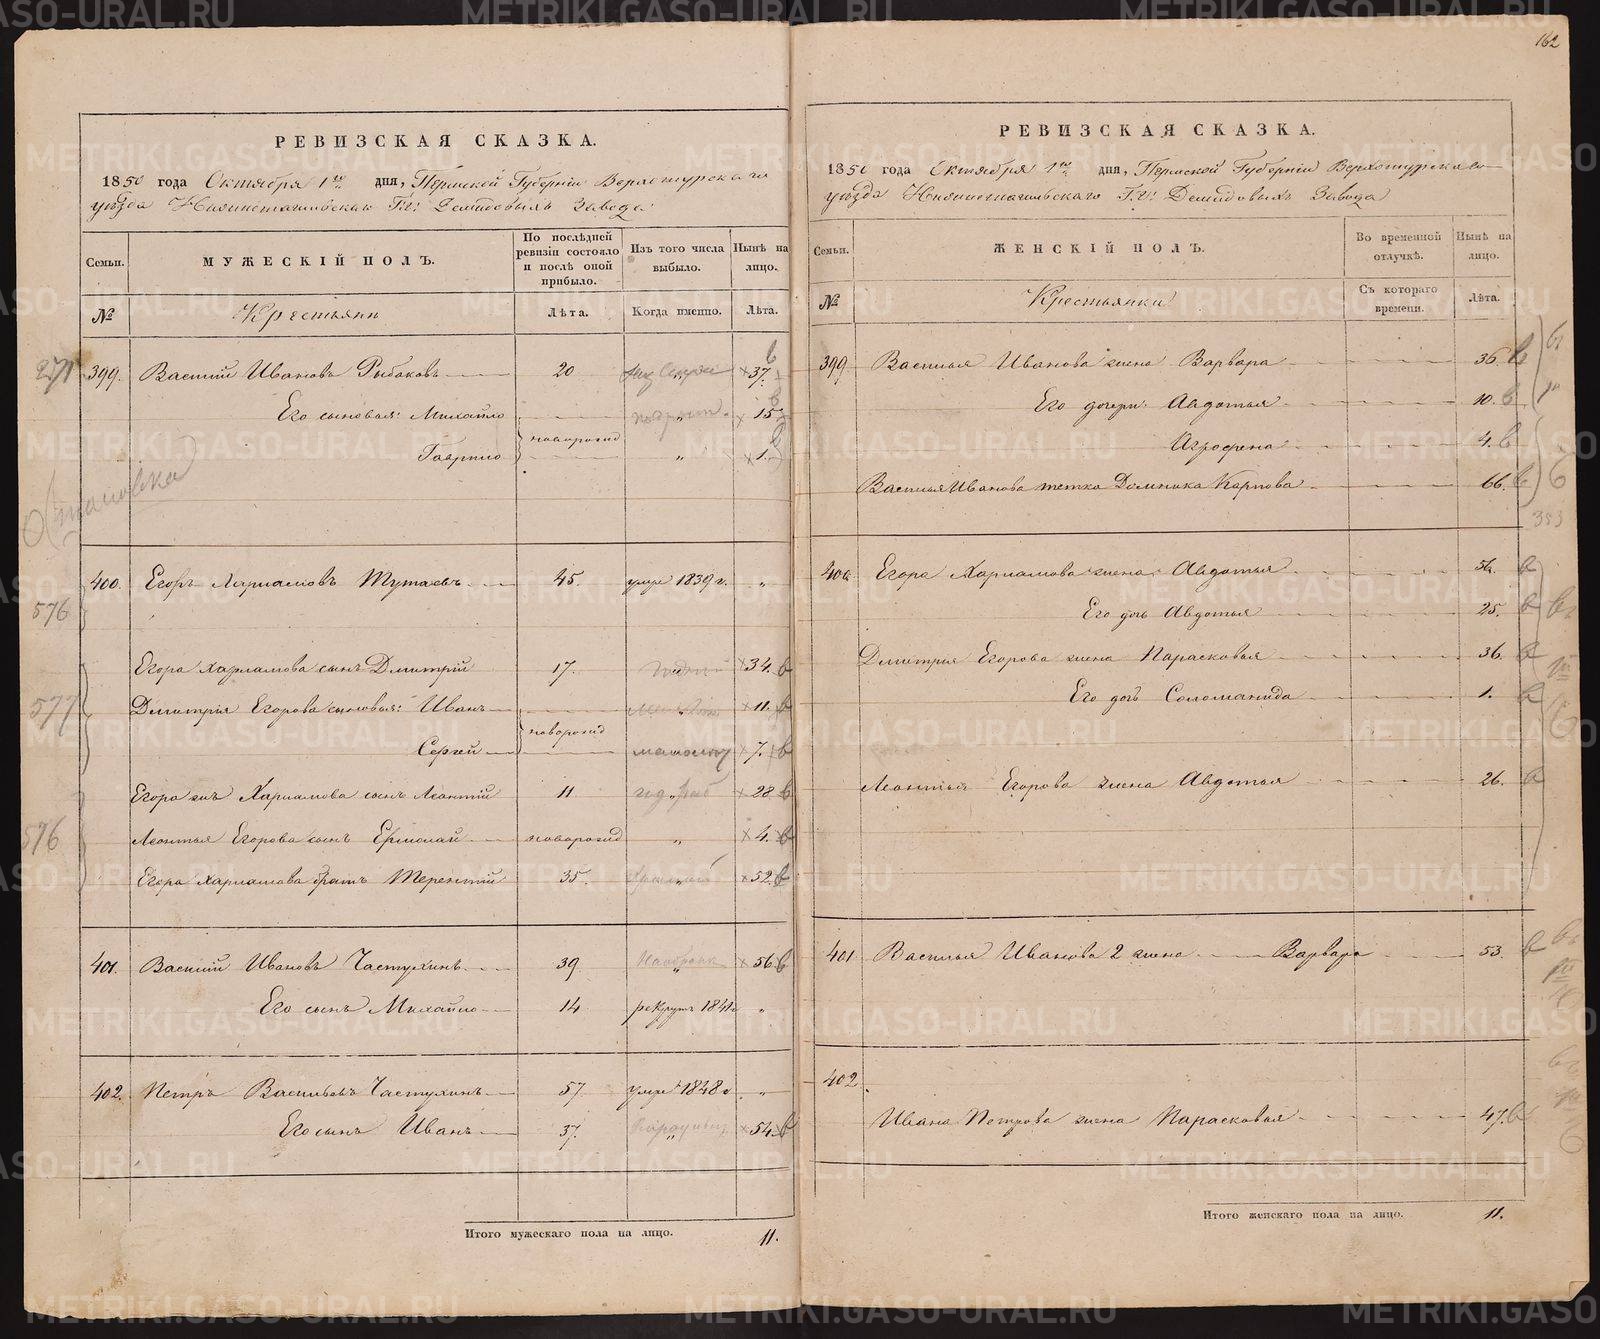 162
РЕВИЗСКАЯ СКАЗКА.
1850 года Октября 1го дня, Пермской Губерніи Верхотурскаго
уѣзда Нижнетагильскаго Г.г: Демидовыхъ Завода
Семьи.
МУЖЕСКІЙ ПОЛЪ.
По послѣдней ревизіи состояло и послѣ оной прибыло.
Изъ того числа выбыло.
Нынѣ на лицо.
№
Крестьяни
Лѣта.
Когда именно.
Лѣта.
271 399. Василій Ивановъ Рыбаковъ 20 37.
Его сыновья: Михайло 15
новорожд
Гаврило " 1.
Остановка
400. Егоръ Харламовъ Тутаевъ 45. умре 1839 г. "
576
Егора Харламова сынъ Дмитрій 17. 34. в
577 Дмитрія Егорова сыновья: Иванъ 11. в
новорожд
Сергей 7. в
Егора жъ Харламова сынъ Леонтій 11 28 в
576 Леонтья Егорова сынъ Ермолай новорожд " 4. в
Егора Харламова братъ Терентій 35. 52 в
401. Василій Ивановъ Частухинъ 39 56 в
Его сынъ Михайло 14 рекрутъ 1841 г "
402. Петръ Васильевъ Частухинъ 57 умре 1848 г. "
Его сынъ Иванъ 37. 54. в
Итого мужескаго пола на лицо. 11.
РЕВИЗСКАЯ СКАЗКА.
1850 года Октября 1го дня, Пермской Губерніи Верхотурскаго
уѣзда Нижнетагильскаго Г.г: Демидовыхъ Завода
Семьи.
ЖЕНСКІЙ ПОЛЪ.
Во временной отлучкѣ.
Нынѣ на лицо.
№
Крестьянки
Съ котораго времени.
Лѣта.
399 Василья Иванова жена Варвара 36. в
Его дочери: Авдотья 10. в
Агрофена 4. в
Василья Иванова тетка Домника Карпова 66. в
353
400. Егора Харламова жена Авдотья 56. в
Его дочь Авдотья 25. в
Дмитрія Егорова жена Парасковья 36. в
Его дочь Соломанида 1. в
Леонтья Егорова жена Авдотья 26. в
401 Василья Иванова 2 жена Варвара 53. в
402.
Ивана Петрова жена Парасковья 47. в
Итого женскаго пола на лицо. 11.
METRIKI.GASO-URAL.RU